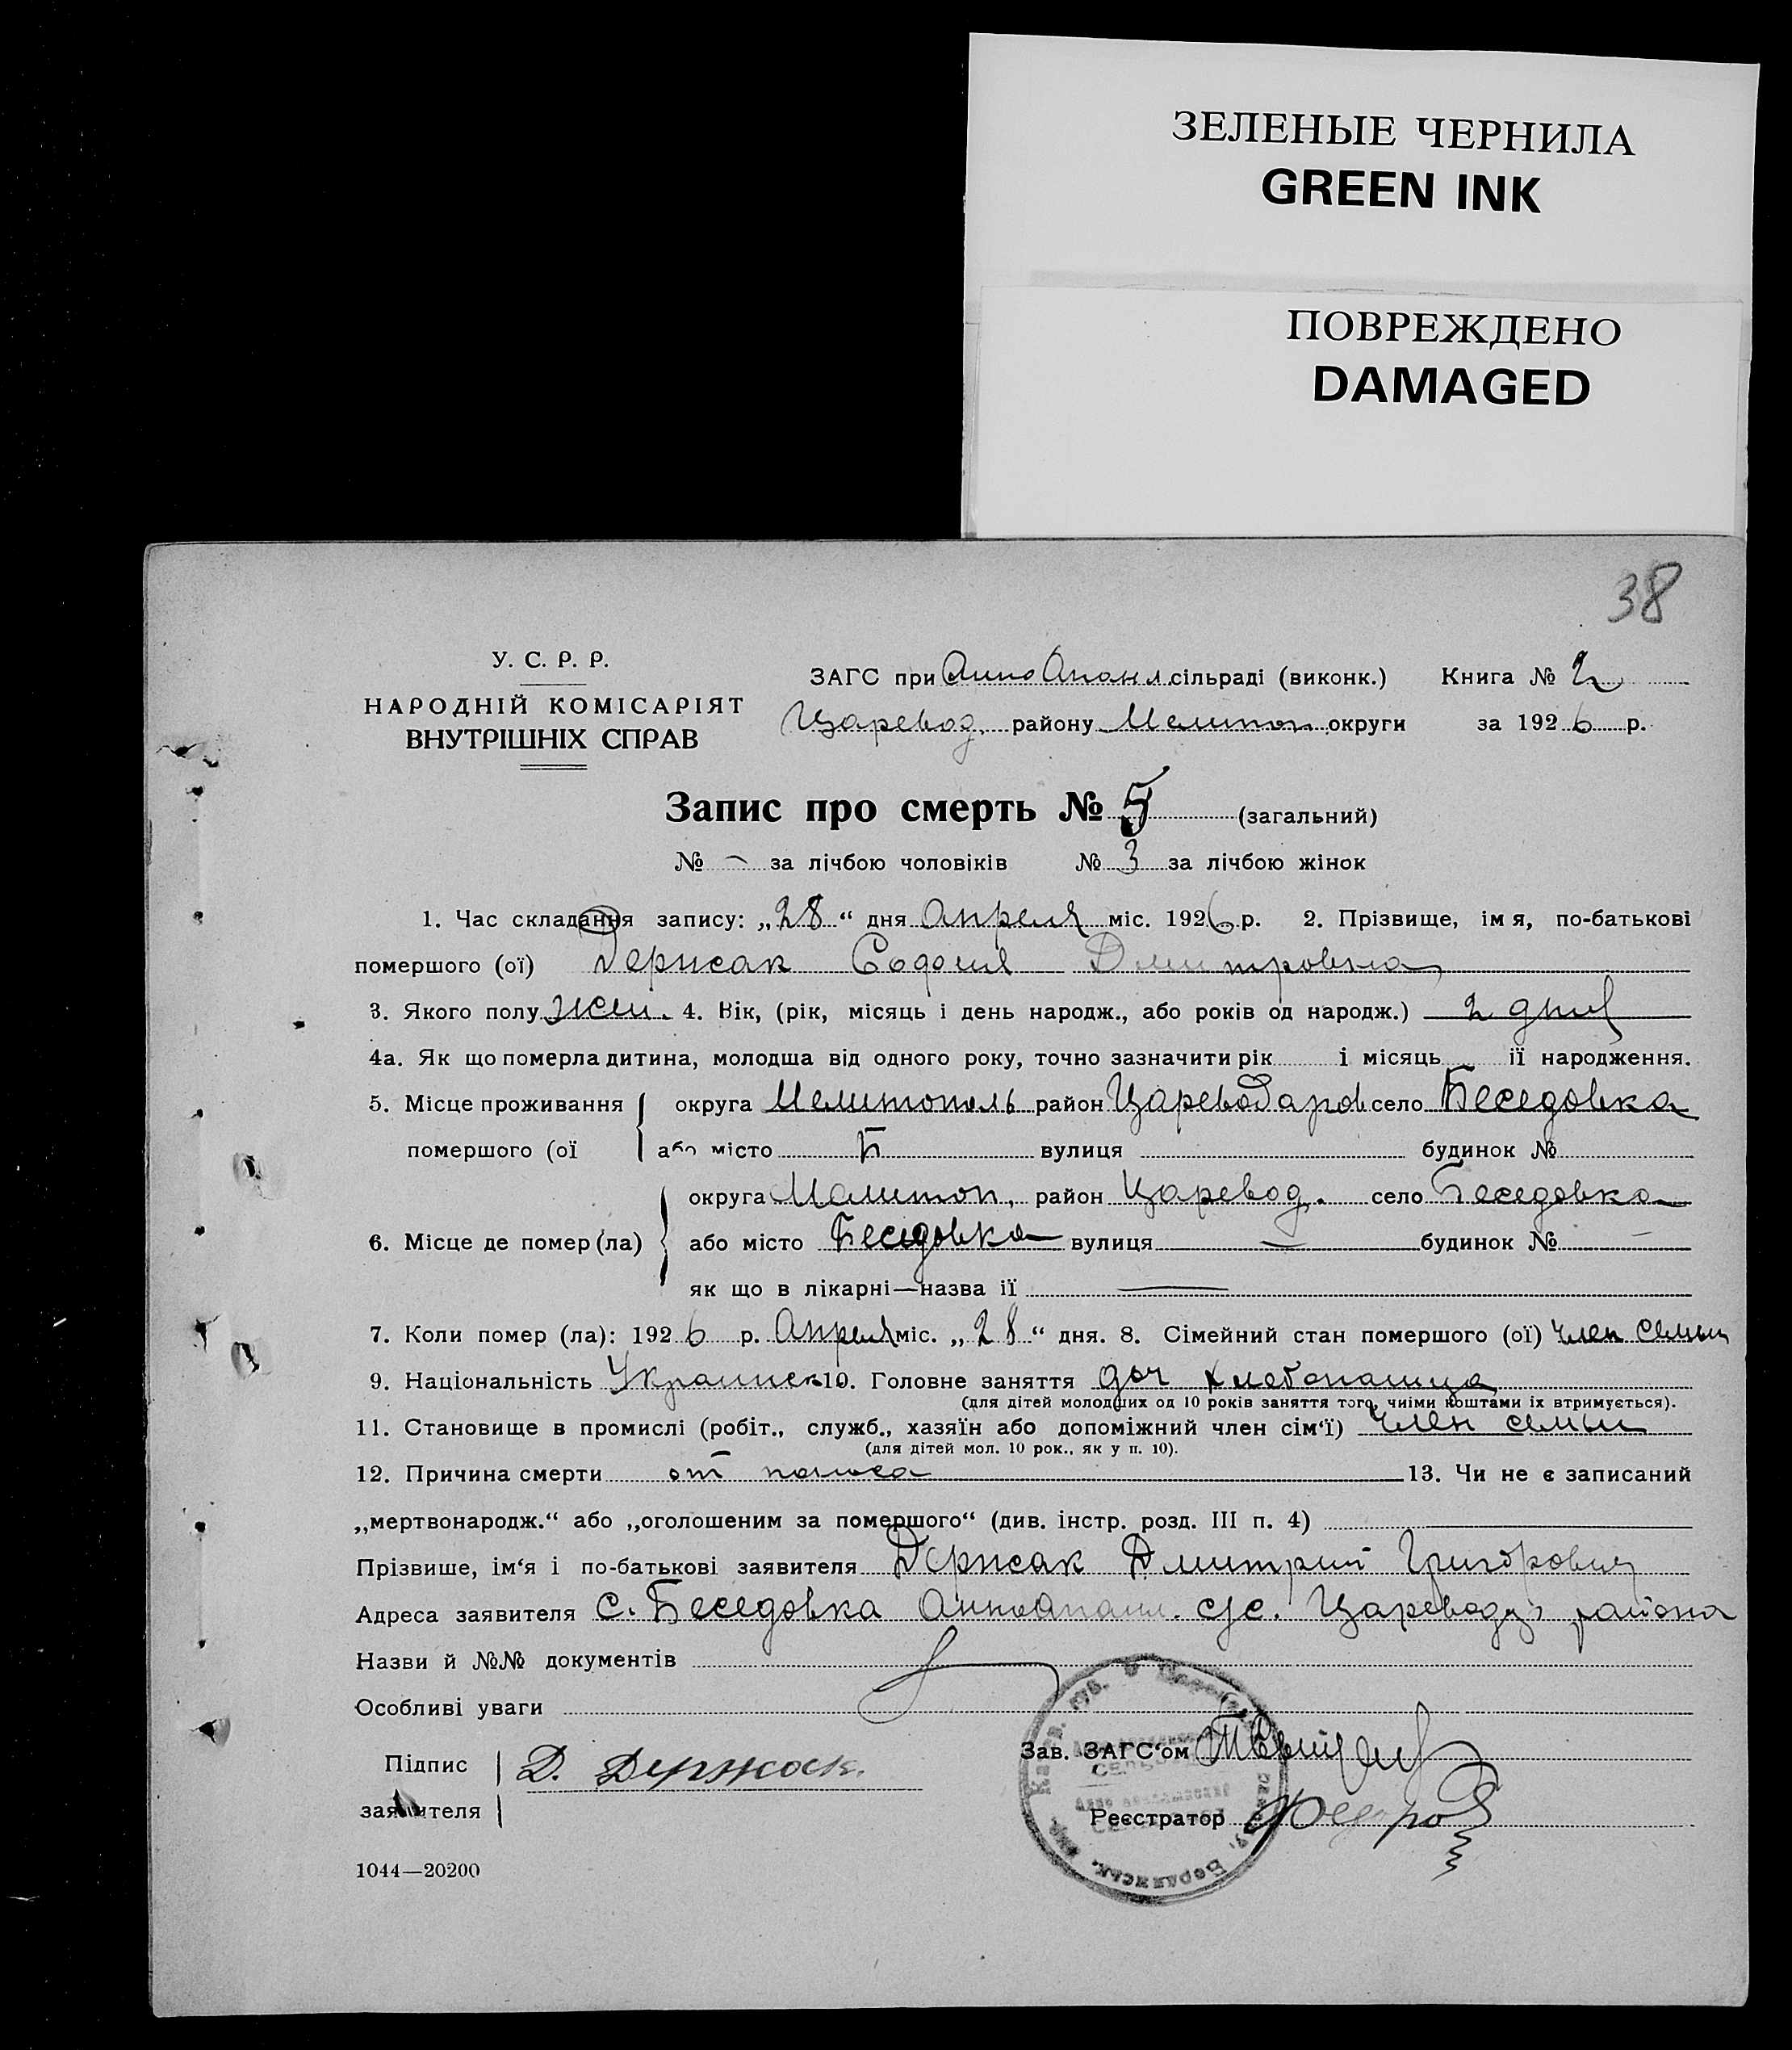 ЗЕЛЕНЫЕ ЧЕРНИЛА
GREEN INK
ПОВРЕЖДЕНО
DAMAGED
38
У. С. Р. Р.
НАРОДНІЙ КОМІСАРІЯТ
ВНУТРІШНІХ СПРАВ
ЗАГС при сільраді (виконк.) Книга № 2
Царевод. району Мелитоп округи за 1926 р.
Запис про смерть № 5 (загальний)
№ – за лічбою чоловіків № 3 за лічбою жінок
1. Час складання запису: „28“ дня Апреля міс. 1926 р. 2. Прізвище, імя, по-батькові
помершого (ої) Держак София Дмитровна
3. Якого полу жен. 4. Вік, (рік, місяць і день народж., або років од народж.) 2 дня
4а. Як що померла дитина, молодша від одного року, точно зазначити рік і місяць ії народження.
5. Місце проживання округа Мелитополь район Цареводаров село Беседовка
помершого (ої або місто Б вулиця будинок №
округа Мелитоп. район Царевод. село Беседовка
6. Місце де помер (ла) або місто Беседовка вулиця — будинок № —
як що в лікарні—назва ії —
7. Коли помер (ла): 1926 р. Апреля міс. „28“ дня. 8. Сімейний стан помершого (ої) член семьи
9. Національність Украинск 10. Головне заняття доч хлебопашца
(для дітей молодших од 10 років заняття того, чиїми коштами їх втримується).
11. Становище в промислі (робіт., служб., хазяїн або допоміжний член сім‘ї) член семьи
(для дітей мол. 10 рок., як у п. 10).
12. Причина смерти от 13. Чи не є записаний
„мертвонародж.“ або „оголошеним за помершого“ (див. інстр. розд. III п. 4)
Прізвише, ім‘я і по-батькові заявителя Держак Дмитрий Григорович
Адреса заявителя с. Беседовка с/с. района
Назви й №№ документів
Особливі уваги
Підпис Д. Держак.
заявителя
Зав. ЗАГС‘ом
Реєстратор Федоров
1044—20200